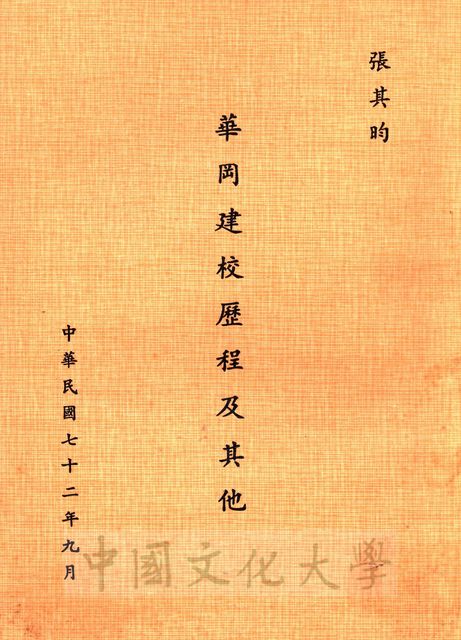 張其昀
華岡建校歷程及其他
中華民國七十二年九月
中國文化大學